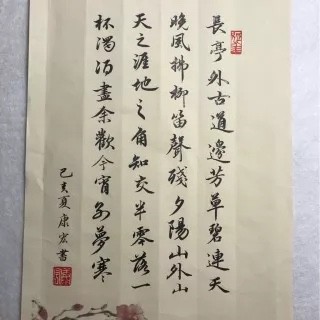 長亭外古道邊芳草碧連天
晚風拂柳笛聲殘夕陽山外山
天之涯地之角知交半零落一
杯濁酒盡余歡今宵別夢寒
己亥夏康宏書